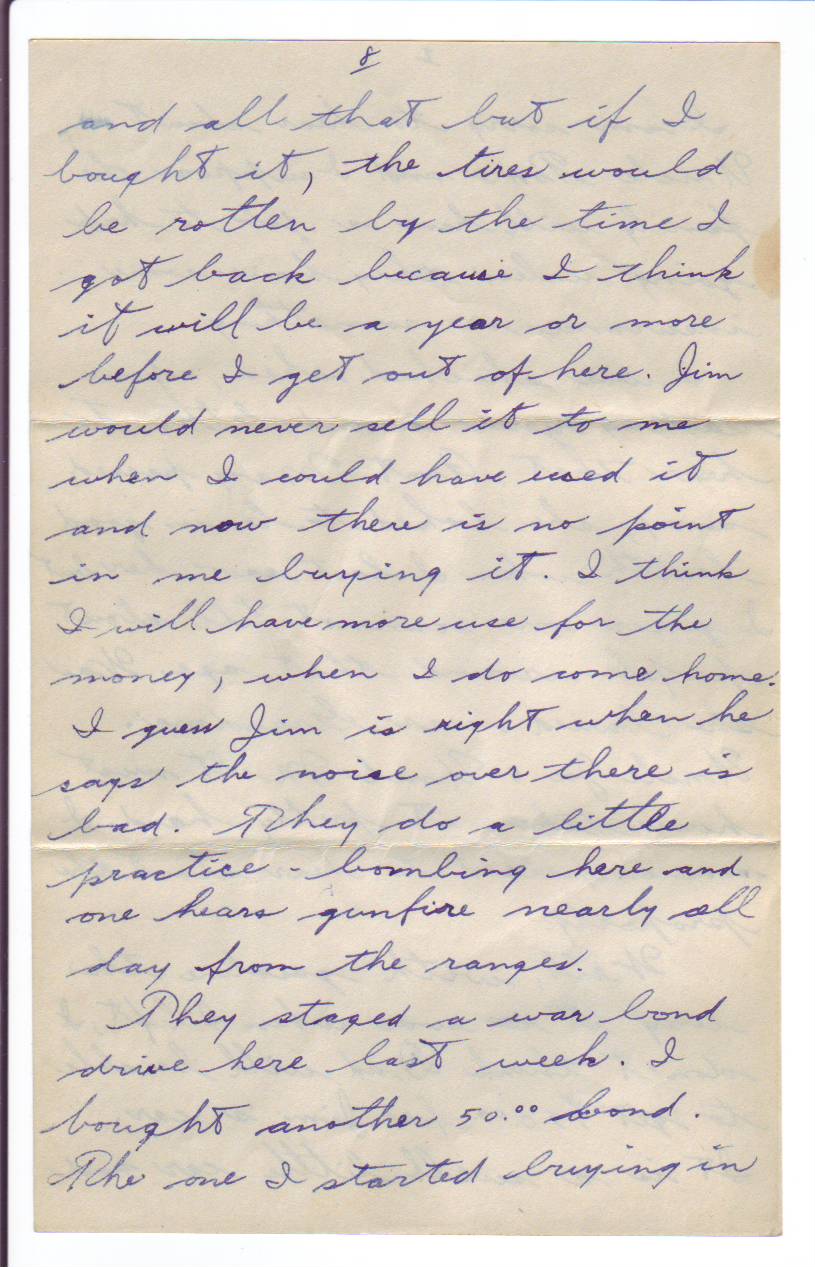 8
and all that but if I
bought it, the tires would
be rotten by the time I
got back because I think
it will be a year or more
before I get out of here. Jim
would never sell it to me
when I could have used it
and now there is no point
in me buying it. I think
I will have more use for the
money, when I do come home.
I guess Jim is right when he
says the noise over there is
bad. They do a little
practice - bombing here and
one hears gunfire nearly all
day from the ranges.
They staged a war bond
drive here last week. I
bought another 50.00 bond.
The one I started buying in